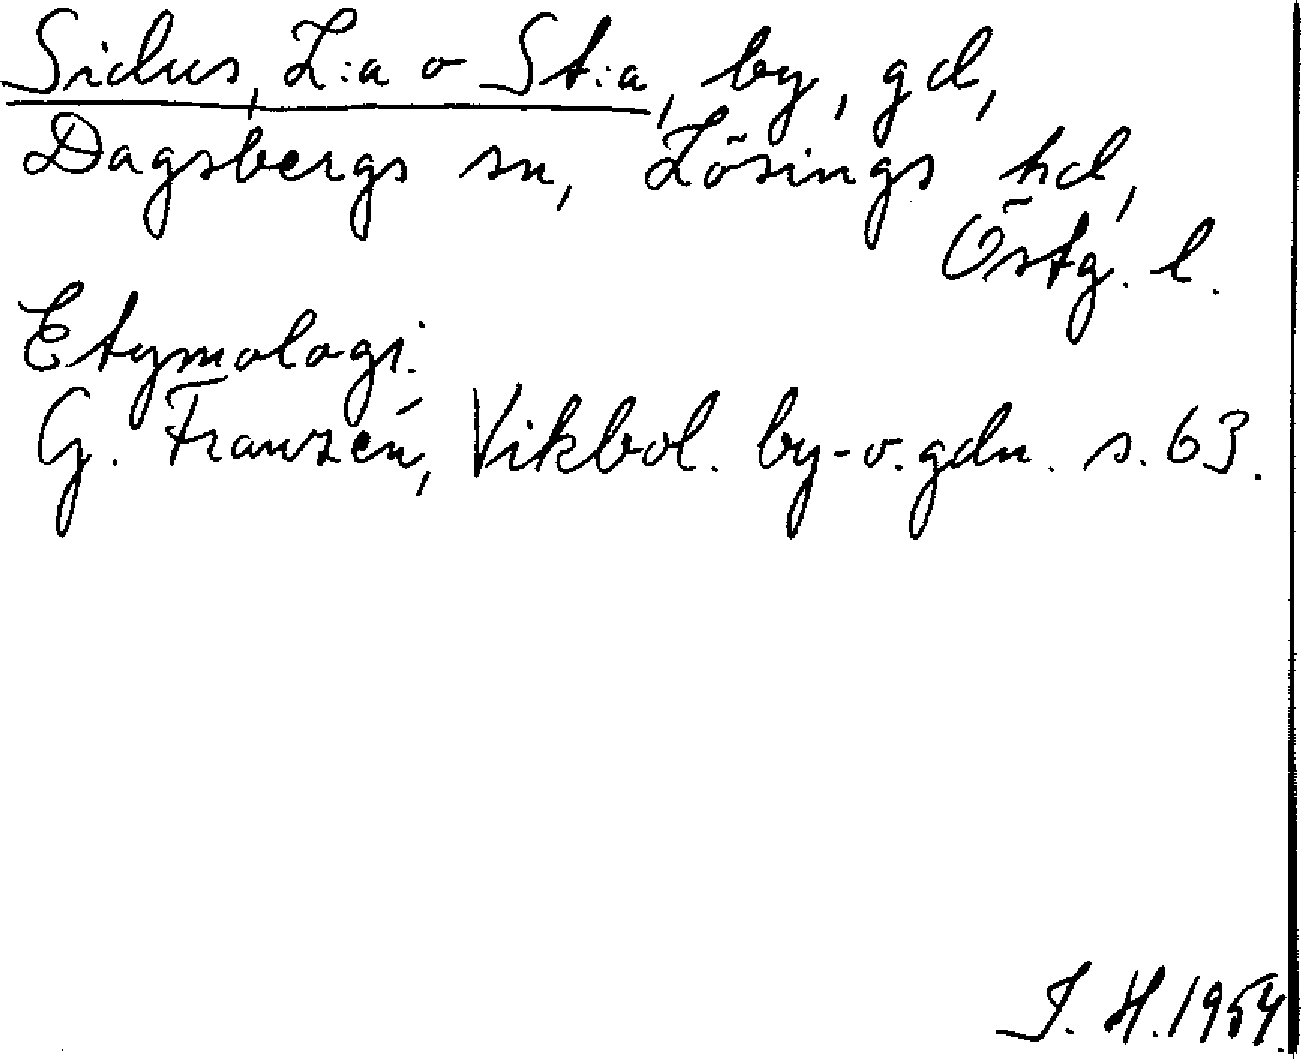 Sidus, L:a o St:a, by, gd,
Dagsbergs sn, Lösings hd,
Östg. l.
Etymologi.
G. Franzén, Vikbol. by- o. gdn. s. 63.
I. H. 1954.